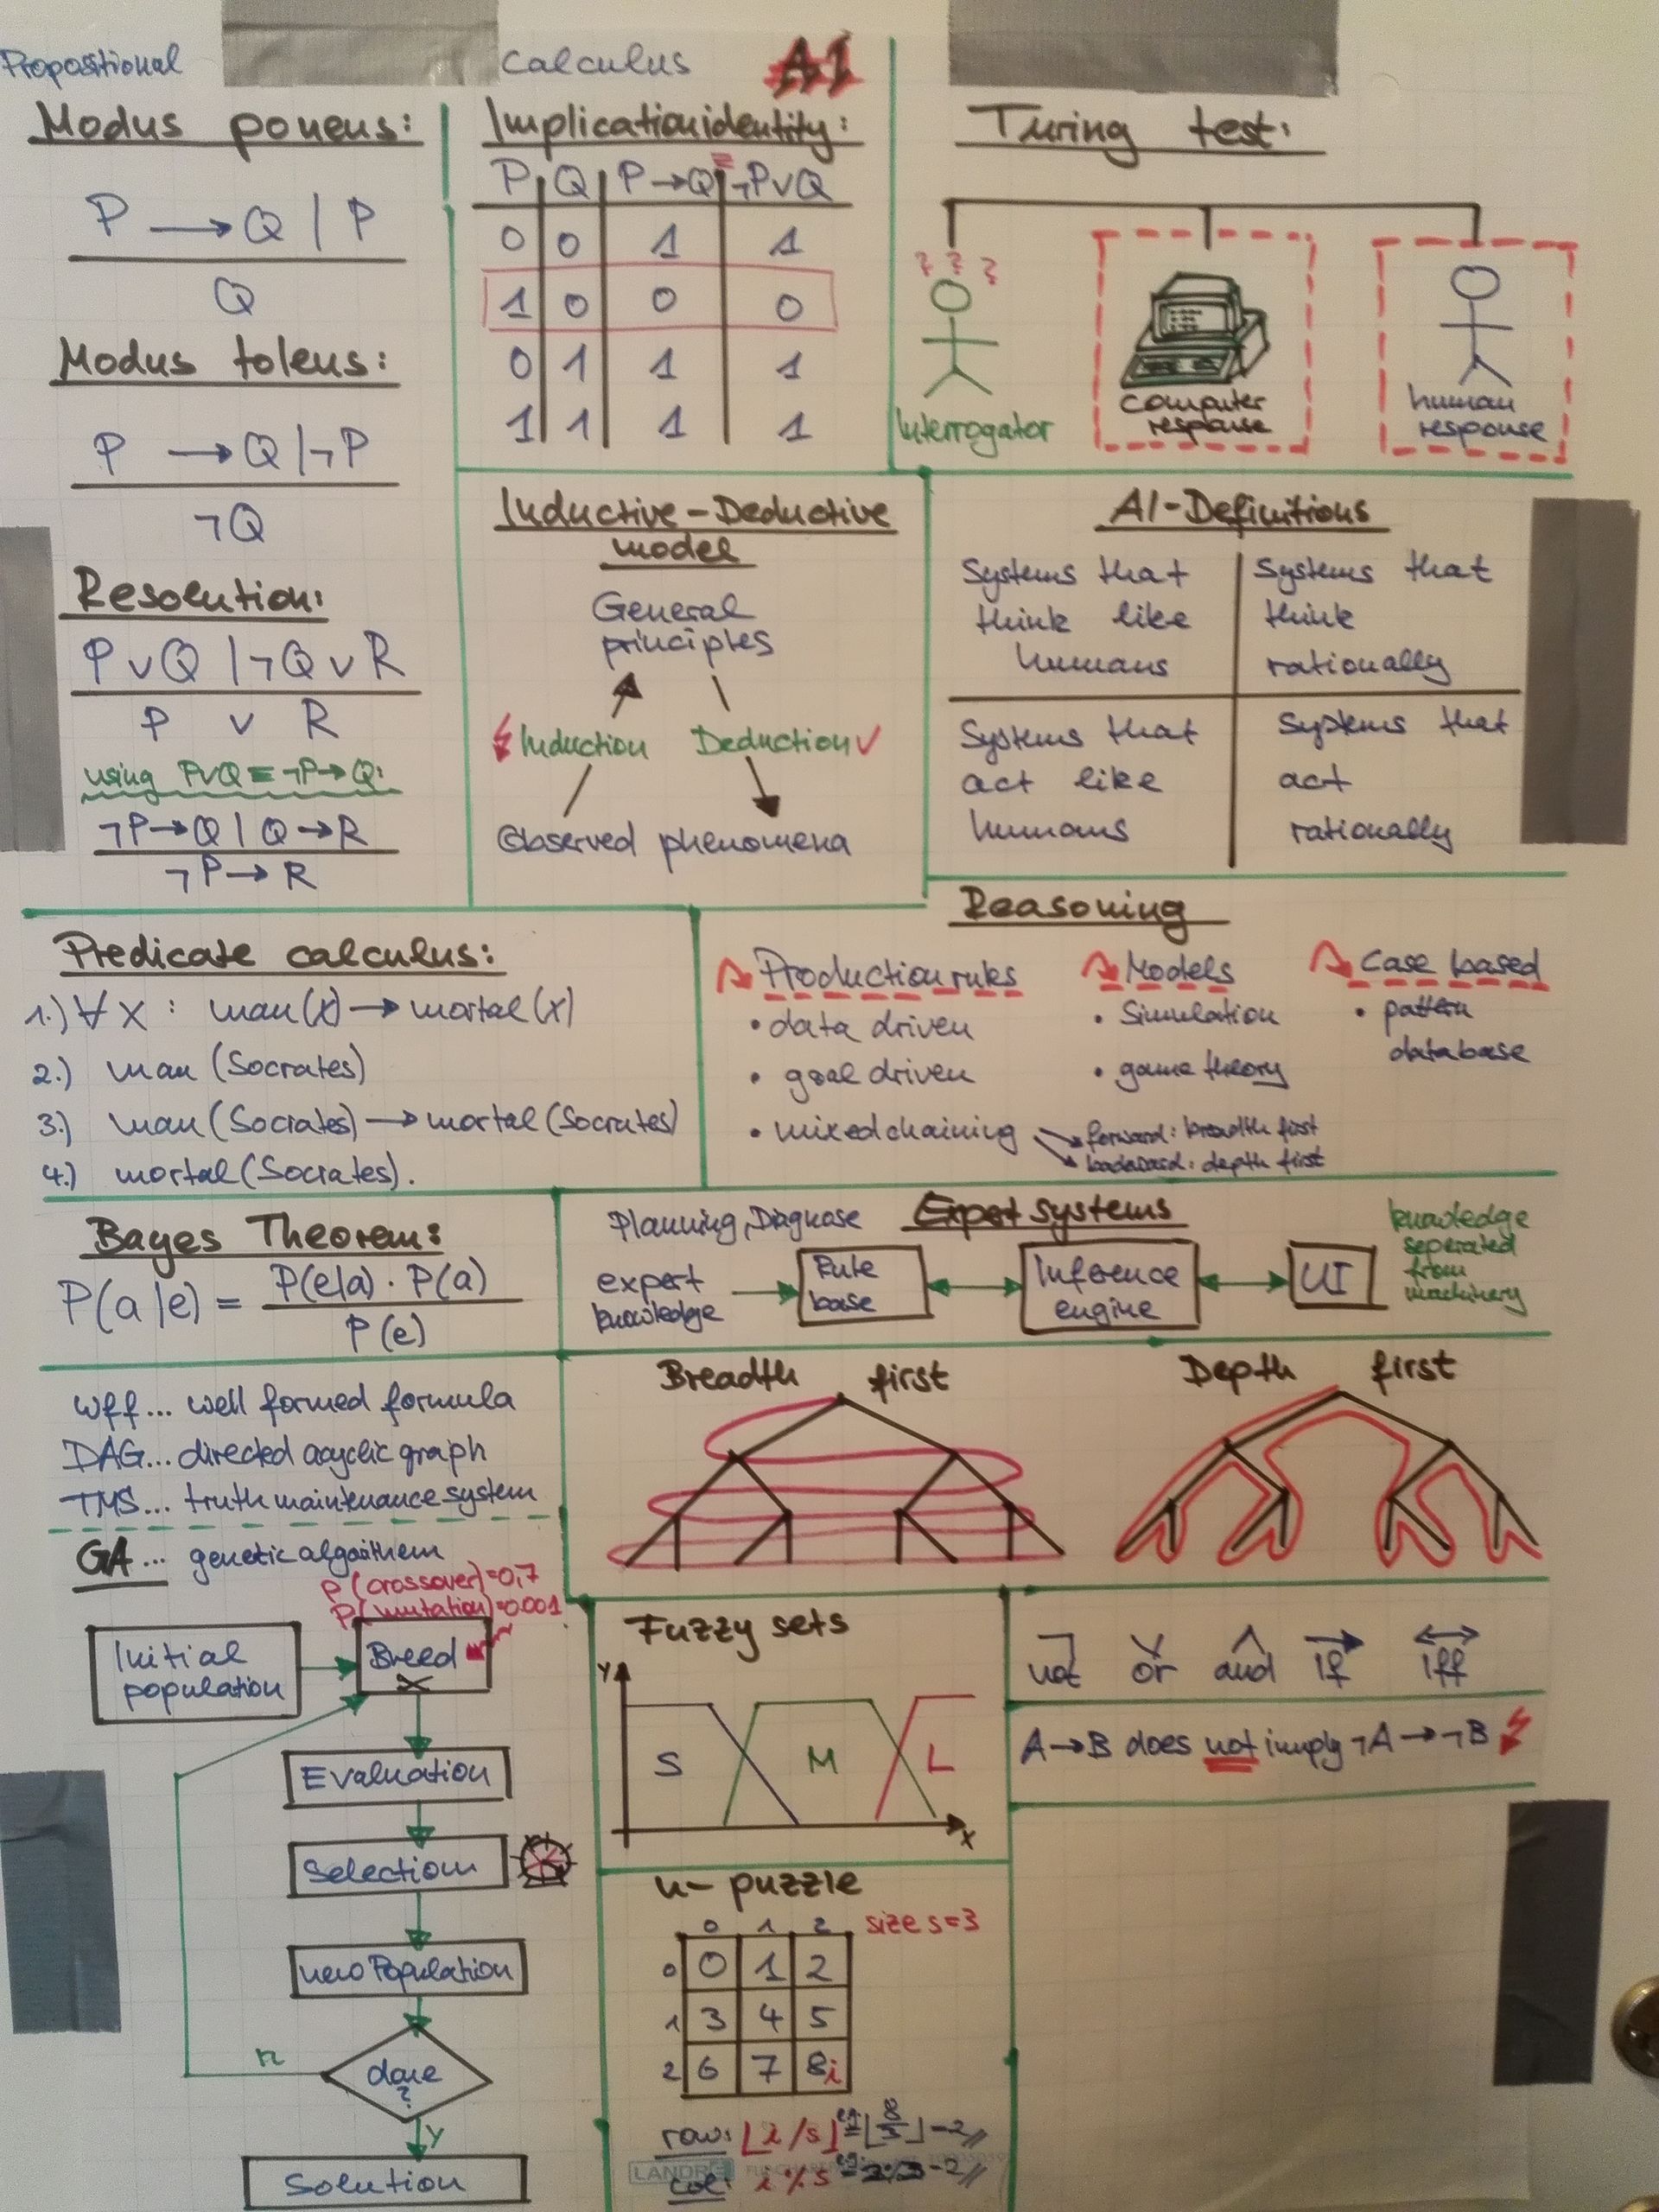 Propositional Calculus AI
Modus ponens:
P → Q | P
Q
Modus tolens:
P → Q | ¬P
¬Q
Resolution:
P ∨ Q | ¬Q ∨ R
P ∨ R
using P∨Q ≡ ¬P→Q:
¬P→Q | Q→R
¬P→R
Implicationidentity:
P Q P→Q ≡ ¬P∨Q
0 0 1 1
1 0 0 0
0 1 1 1
1 1 1 1
Turing test:
? ? ?
Interrogator
computer
response
human
response
Inductive-Deductive
model
General
principles
Induction Deduction ✓
Observed phenomena
AI-Definitions
Systems that
think like
humans
Systems that
think
rationally
Systems that
act like
humans
Systems that
act
rationally
Predicate calculus:
1.) ∀ x : man(x) → mortal(x)
2.) man (Socrates)
3.) man (Socrates) → mortal (Socrates)
4.) mortal (Socrates).
Reasoning
Production rules
• data driven
• goal driven
• mixed chaining
forward: breadth first
backward: depth first
Models
• Simulation
• game theory
Case based
• pattern
database
Bayes Theorem:
P(a|e) = P(e|a) · P(a)
P(e)
Planning, Diagnose Expert systems
expert
knowledge
Rule
base
Inference
engine
UI
knowledge
seperated
from
machinery
wff... well formed formula
DAG... directed acyclic graph
TMS... truth maintenance system
GA... genetic algorithem
P(crossover)=0,7
P(mutation)=0.001
Initial
population
Breed
Evaluation
Selection
new Population
done
?
n
y
Solution
Breadth first
Depth first
Fuzzy sets
Y
S M L
X
¬ ∨ ∧ → ↔
not or and if iff
A→B does not imply ¬A→¬B
n-puzzle
size s=3
0 1 2
0 0 1 2
1 3 4 5
2 6 7 8 i
row: ⌊i/s⌋ eg = ⌊8/3⌋ = 2
col: i % s eg =
LANDRÉ